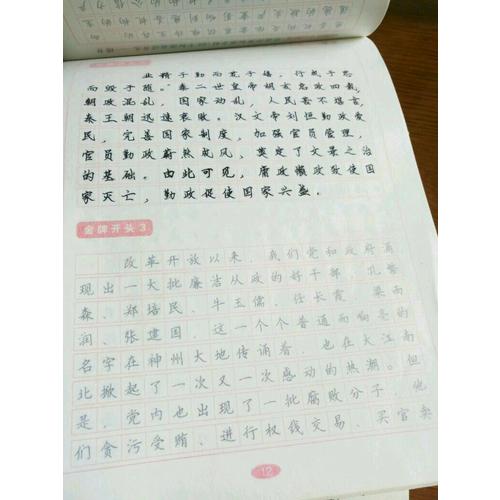 业精于勤而荒于嬉，行成于思
而毁于随。"秦二世皇帝胡亥怠政四载，
朝政混乱，国家动乱，人民苦不堪言，
秦王朝迅速衰败。汉文帝刘恒勤政爱
民，完善国家制度，加强官员管理，
官员勤政蔚然成风，奠定了文景之治
的基础。由此可见，庸政懒政致使国
家灭亡，勤政促使国家兴盛。
金牌开头3
改革开放以来，我们党和政府涌
现出一大批廉洁从政的好干部，孔繁
森、郑培民、牛玉儒、任长霞、梁雨
润、张建国，这一个个普通而响亮的
名字在神州大地传诵着，也在大江南
北掀起了一次又一次感动的热潮。但
是，党内也出现了一批腐败分子，他
们贪污受贿、进行权钱交易、买官卖
12